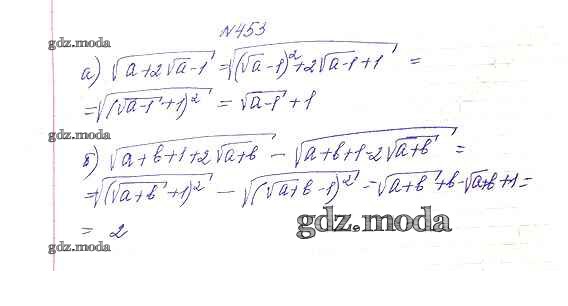 №453
gdz.moda
а) √(a+2√(a-1)) = √((√a-1)²+2√a-1+1) =
= √((√(a-1)+1)²) = √(a-1)+1
gdz.moda
б) √(a+b+1+2√(a+b)) - √(a+b+1-2√(a+b)) =
= √((√(a+b)+1)²) - √((√(a+b)-1)²) = √(a+b)+b-√a+b+1=
= 2
gdz.moda
gdz.moda